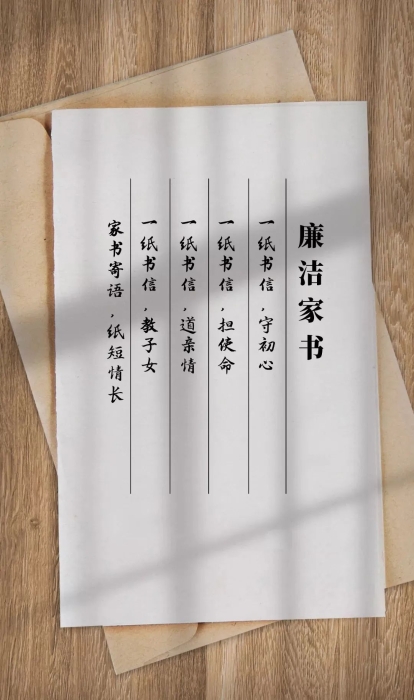 廉洁家书
一纸书信，守初心
一纸书信，担使命
一纸书信，道亲情
一纸书信，教子女
家书寄语，纸短情长